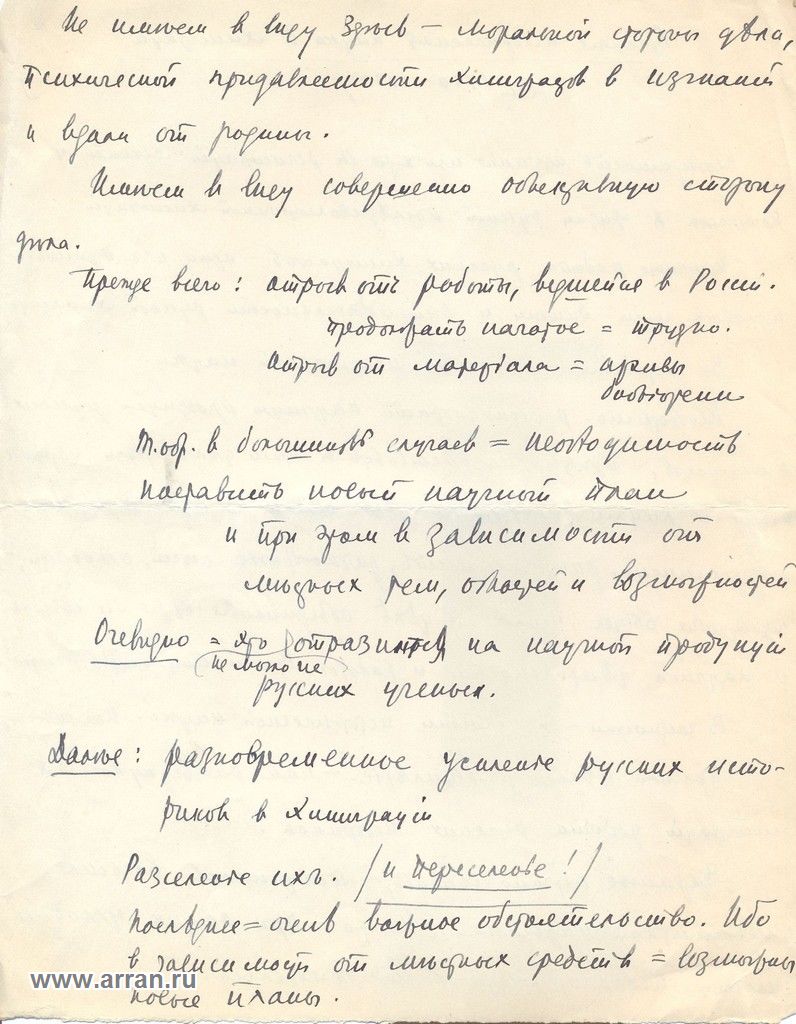 Не имѣем в виду здесь – моральной стороны дѣла,
психической придавленности эмигрантов в изгнании
и вдали от родины.
Имѣем в виду совершенно объективную сторону
дѣла.
Прежде всего: отрыв отъ работы, ведшейся в Россіи.
продолжать начатое = трудно.
Отрыв от матеріала = архивы
библіотеки
Т. обр. в большинствѣ случаев = необходимость
поставить новый научный план
и при этом в зависимости от
мѣстных тем, областей и возможностей
Очевидно = это отразиться на научной продукціи
не могло не
русских ученых.
Далѣе: разновременное русских исто-
риков в Эмиграціи
Разселеніе ихъ. / и переселеніе! /
Послѣднее = очень важное обстоятельство. Ибо
в зависимости от мѣстных средств = возможны
новые планы.
www.arran.ru